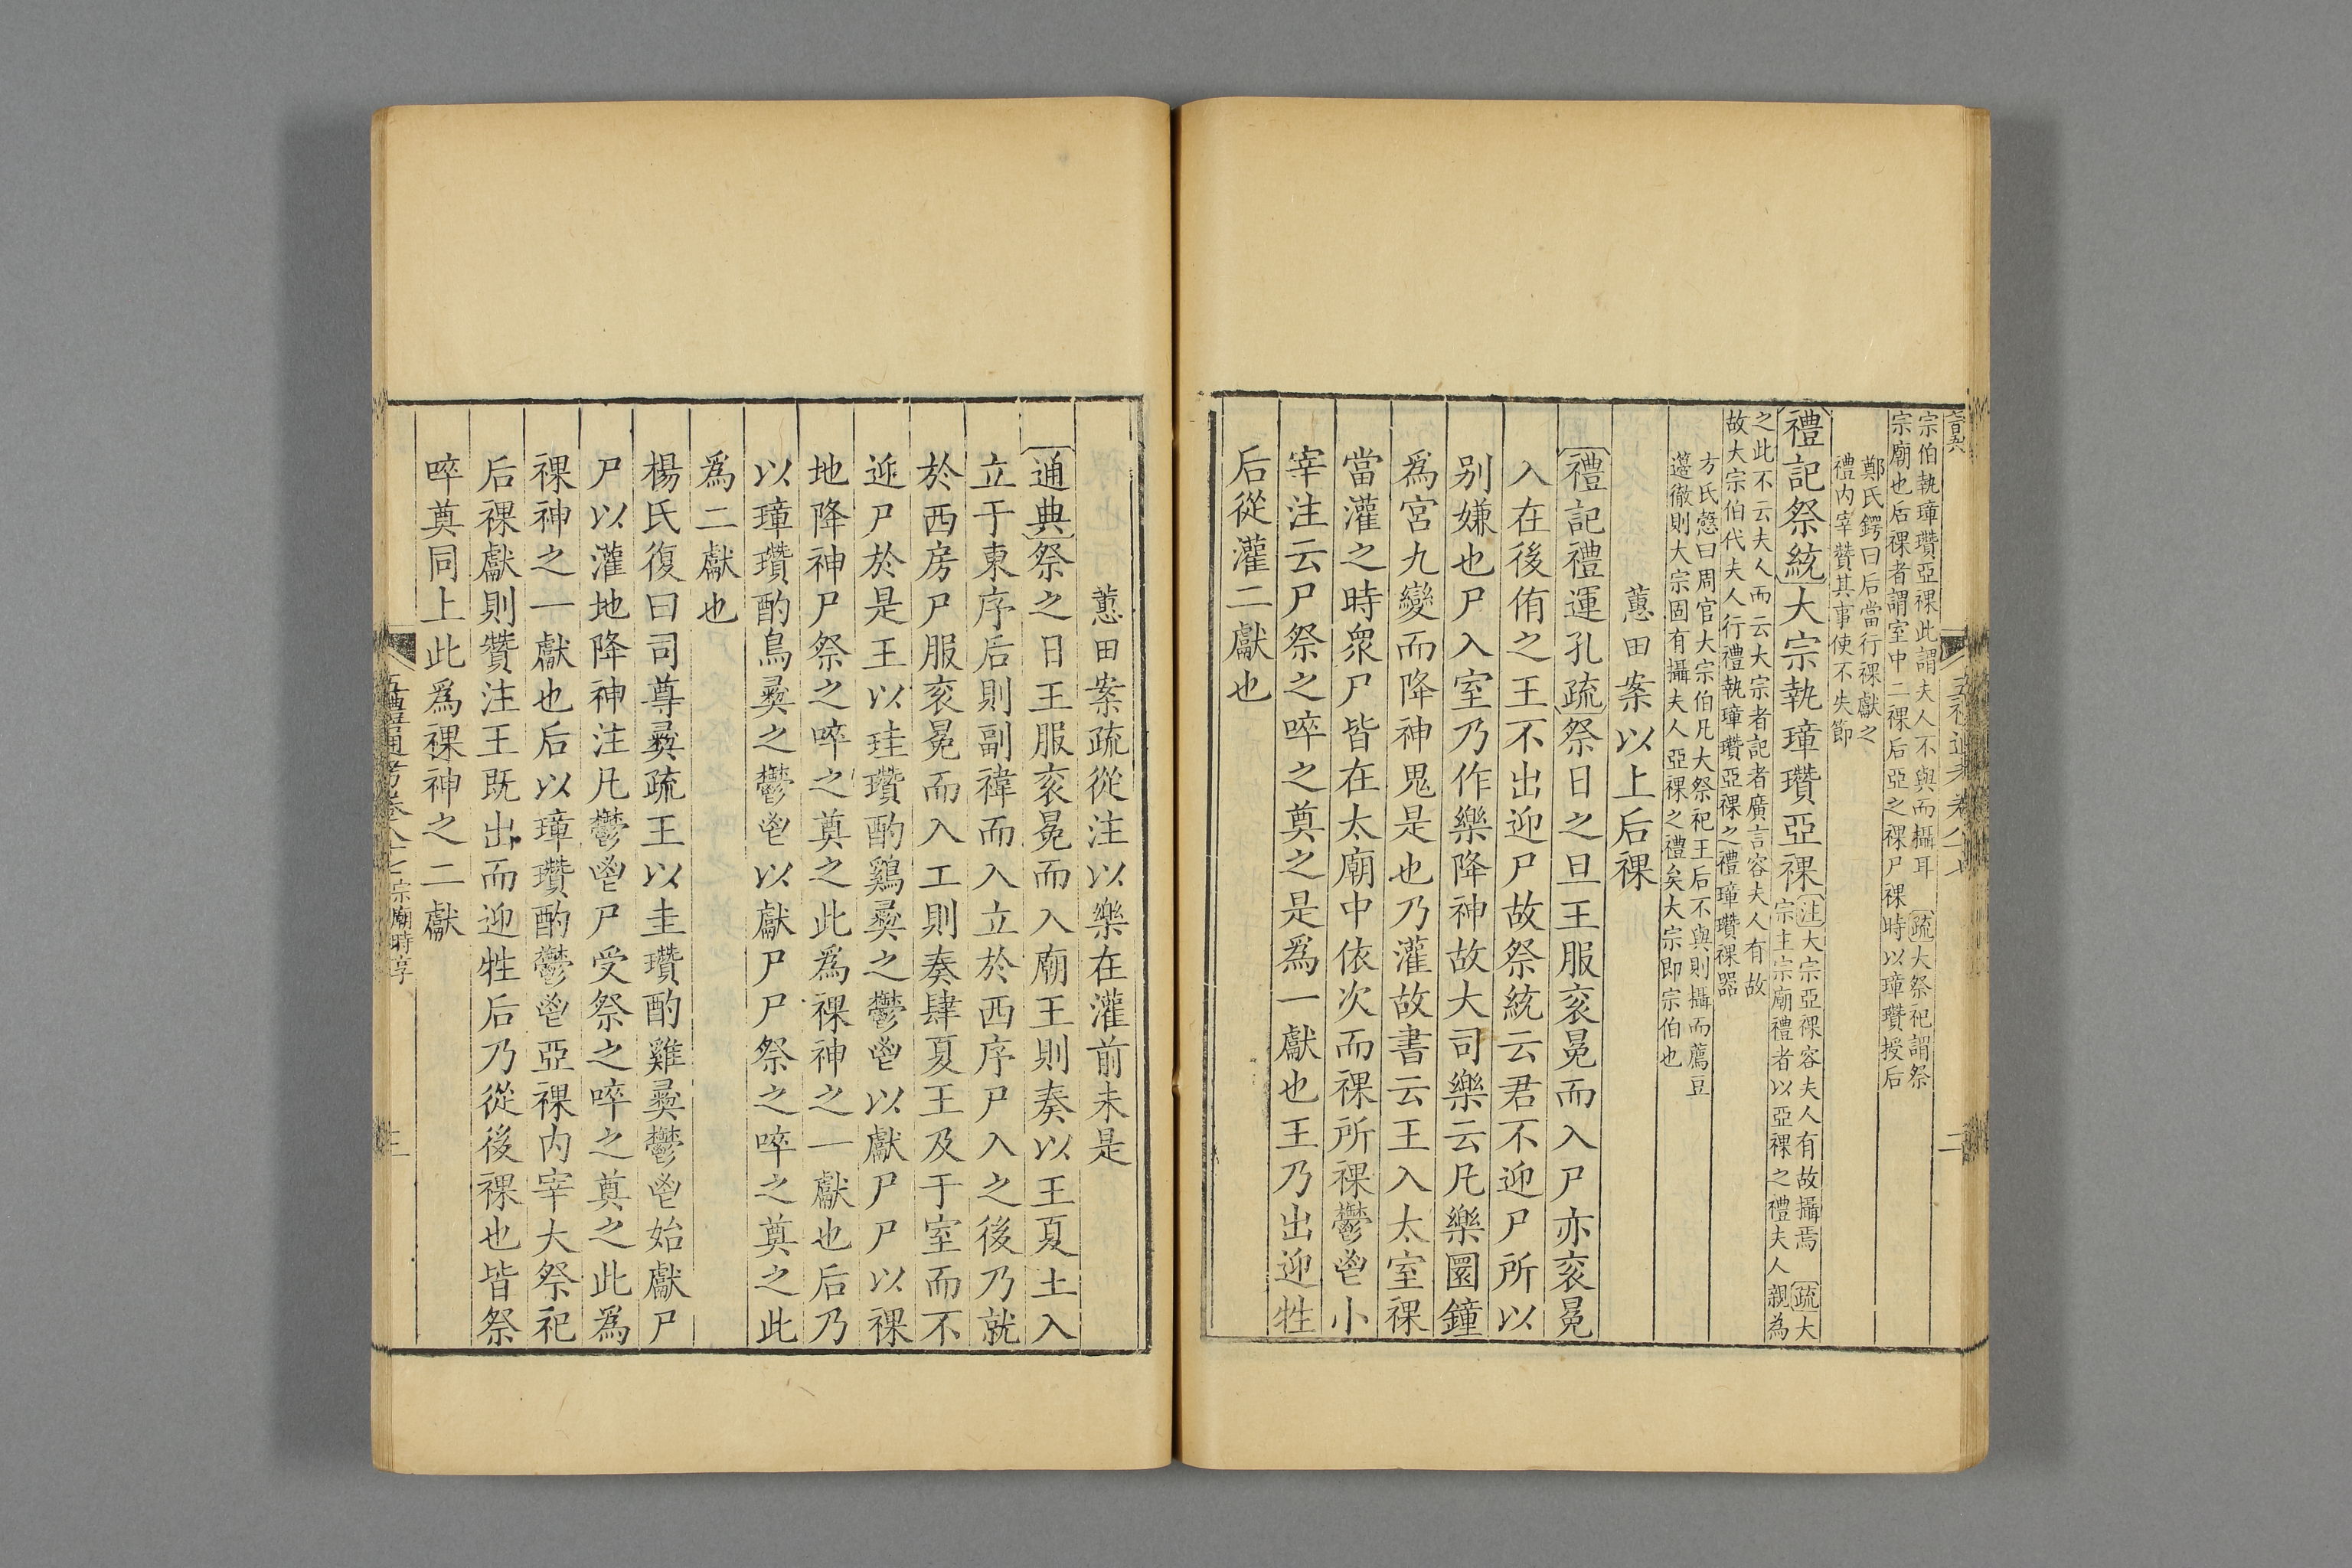 宗伯執璋瓚亞祼此謂夫人不與而攝耳 疏大祭祀謂祭
宗廟也后祼者謂室中二祼后亞之祼尸祼時以璋瓚授后
鄭氏鍔曰后當行祼獻之
禮内宰贊其事使不失節
禮記祭統大宗執璋瓚亞祼
注大宗亞祼容夫人有故攝焉 疏大
宗主宗廟禮者以亞祼之禮夫人親為
之此不云夫人而云大宗者記者廣言容夫人有故
故大宗伯代夫人行禮執璋瓚亞祼之禮璋瓚祼器
方氏慤曰周官大宗伯凡大祭祀王后不與則攝而薦豆
籩徹則大宗固有攝夫人亞祼之禮矣大宗即宗伯也
蕙田案以上后祼
禮記禮運孔疏祭日之旦王服衮冕而入尸亦衮冕
入在後侑之王不出迎尸故祭統云君不迎尸所以
别嫌也尸入室乃作樂降神故大司樂云凡樂圜鐘
爲宮九變而降神鬼是也乃灌故書云王入太室祼
當灌之時衆尸皆在太廟中依次而祼所祼鬱鬯小
宰注云尸祭之啐之奠之是爲一獻也王乃出迎牲
后從灌二獻也
蕙田案疏從注以樂在灌前未是
通典祭之日王服衮冕而入廟王則奏以王夏土入
立于東序后則副褘而入立於西序尸入之後乃就
於西房尸服衮冕而入工則奏肆夏王及于室而不
迎尸於是王以珪瓚酌鷄彞之鬱鬯以獻尸尸以祼
地降神尸祭之啐之奠之此爲祼神之一獻也后乃
以璋瓚酌鳥彞之鬱鬯以獻尸尸祭之啐之奠之此
爲二獻也
楊氏復曰司尊彞疏王以圭瓚酌雞彞鬱鬯始獻尸
尸以灌地降神注凡鬱鬯尸受祭之啐之奠之此為
祼神之一獻也后以璋瓚酌鬱鬯亞祼内宰大祭祀
后祼獻則贊注王既出而迎牲后乃從後祼也皆祭
啐奠同上此爲祼神之二獻
五禮通考卷八十七 宗廟時享